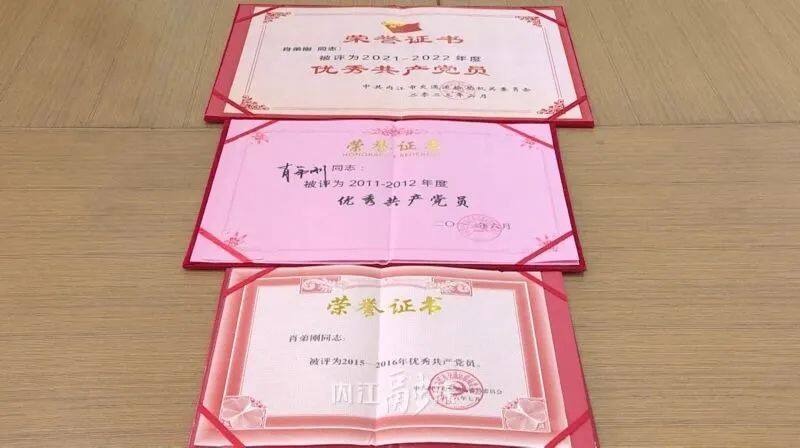 荣誉证书
肖弟刚 同志：
被评为2021-2022年度
优秀共产党员
中共内江市交通运输局机关委员会
二〇二二年六月
荣誉证书
同志：
被评为 2011-2012 年度
优秀共产党员
年六月
荣誉证书
肖弟刚同志：
被评为2015—2016年优秀共产党员。
内江融